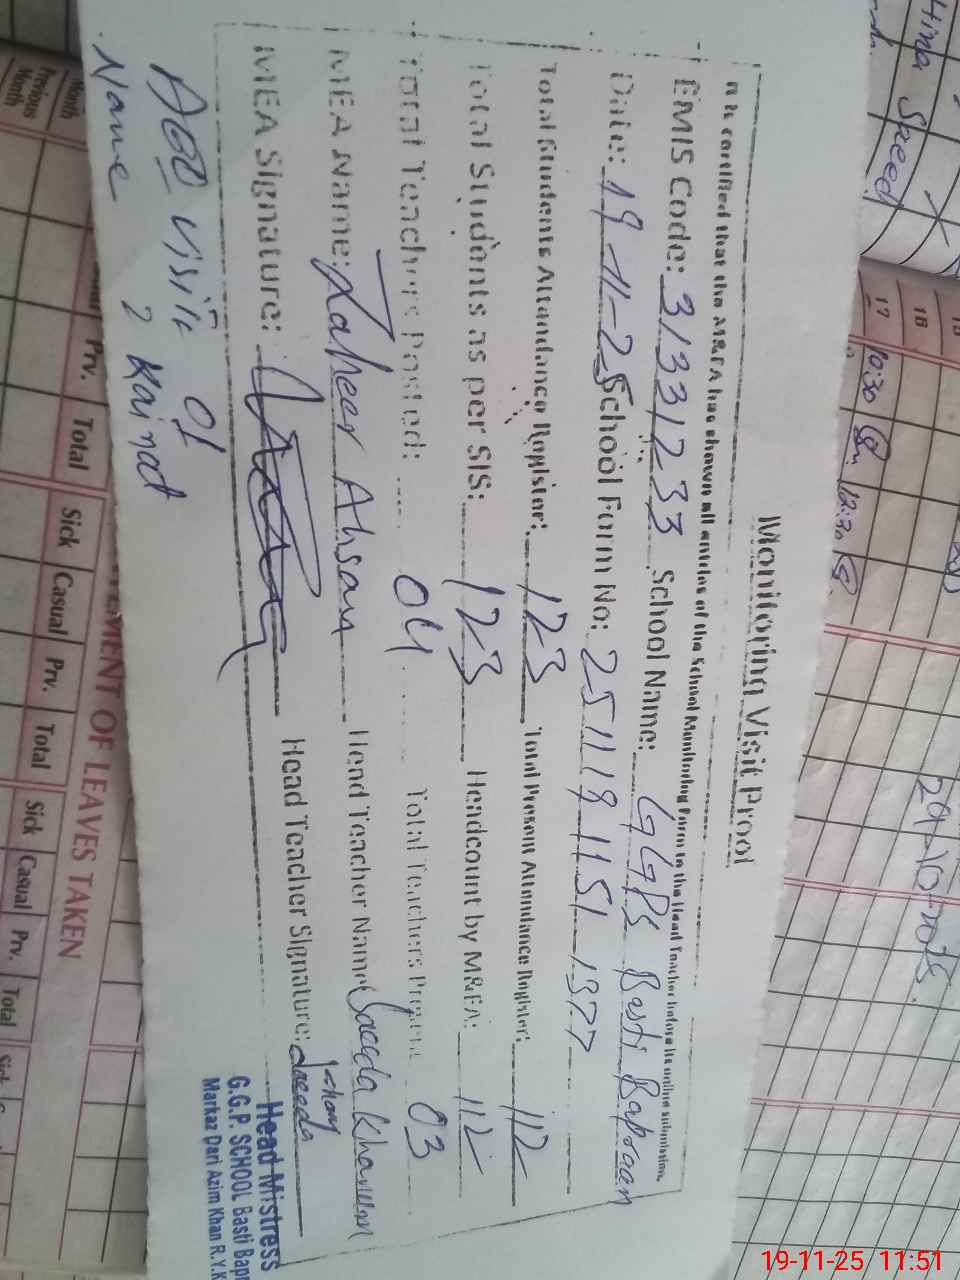 Monitoring Visit Proof
It is certified that the M&EA has shown all entries of the School Monitoring Form to the Head Teacher before its online submission.
EMIS Code: 31331233 School Name: GGPS Basti Bapraan
Date: 19-11-25 School Form No: 2511191151 1377
Total Students Attandance Register: 123 Total Present Attandance Register: 112
Total Students as per SIS: 123 Headcount by M&EA: 112
Total Teachers Posted: 04 Total Teachers Present 03
MEA Name: Zaheer Ahsan Head Teacher Name: Saeeda Khanum
MEA Signature: Head Teacher Signature: Saeeda
Head Mistress
G.G.P. SCHOOL Basti Bapr
Markaz Dari Azim Khan R.Y.K
AEO visit of
Name Kainat
Month
Previous
Month
Prv. Total Sick Casual Prv. Total Sick Casual Prv. Total
OF LEAVES TAKEN
Hina Saeed
16
17 10:30 12:30
29-10-2025
19-11-25 11:51